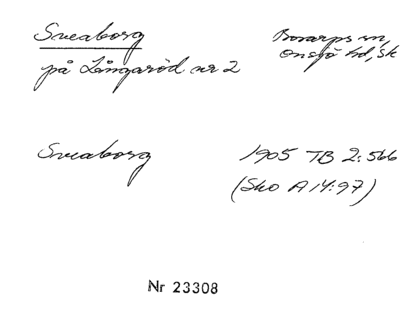 Sveaborg
på Långaröd nr 2
Bosarps sn,
Onsjö hd, Sk
Sveaborg
1905 TB 2:566
(Sko A 14:97)
Nr 23308